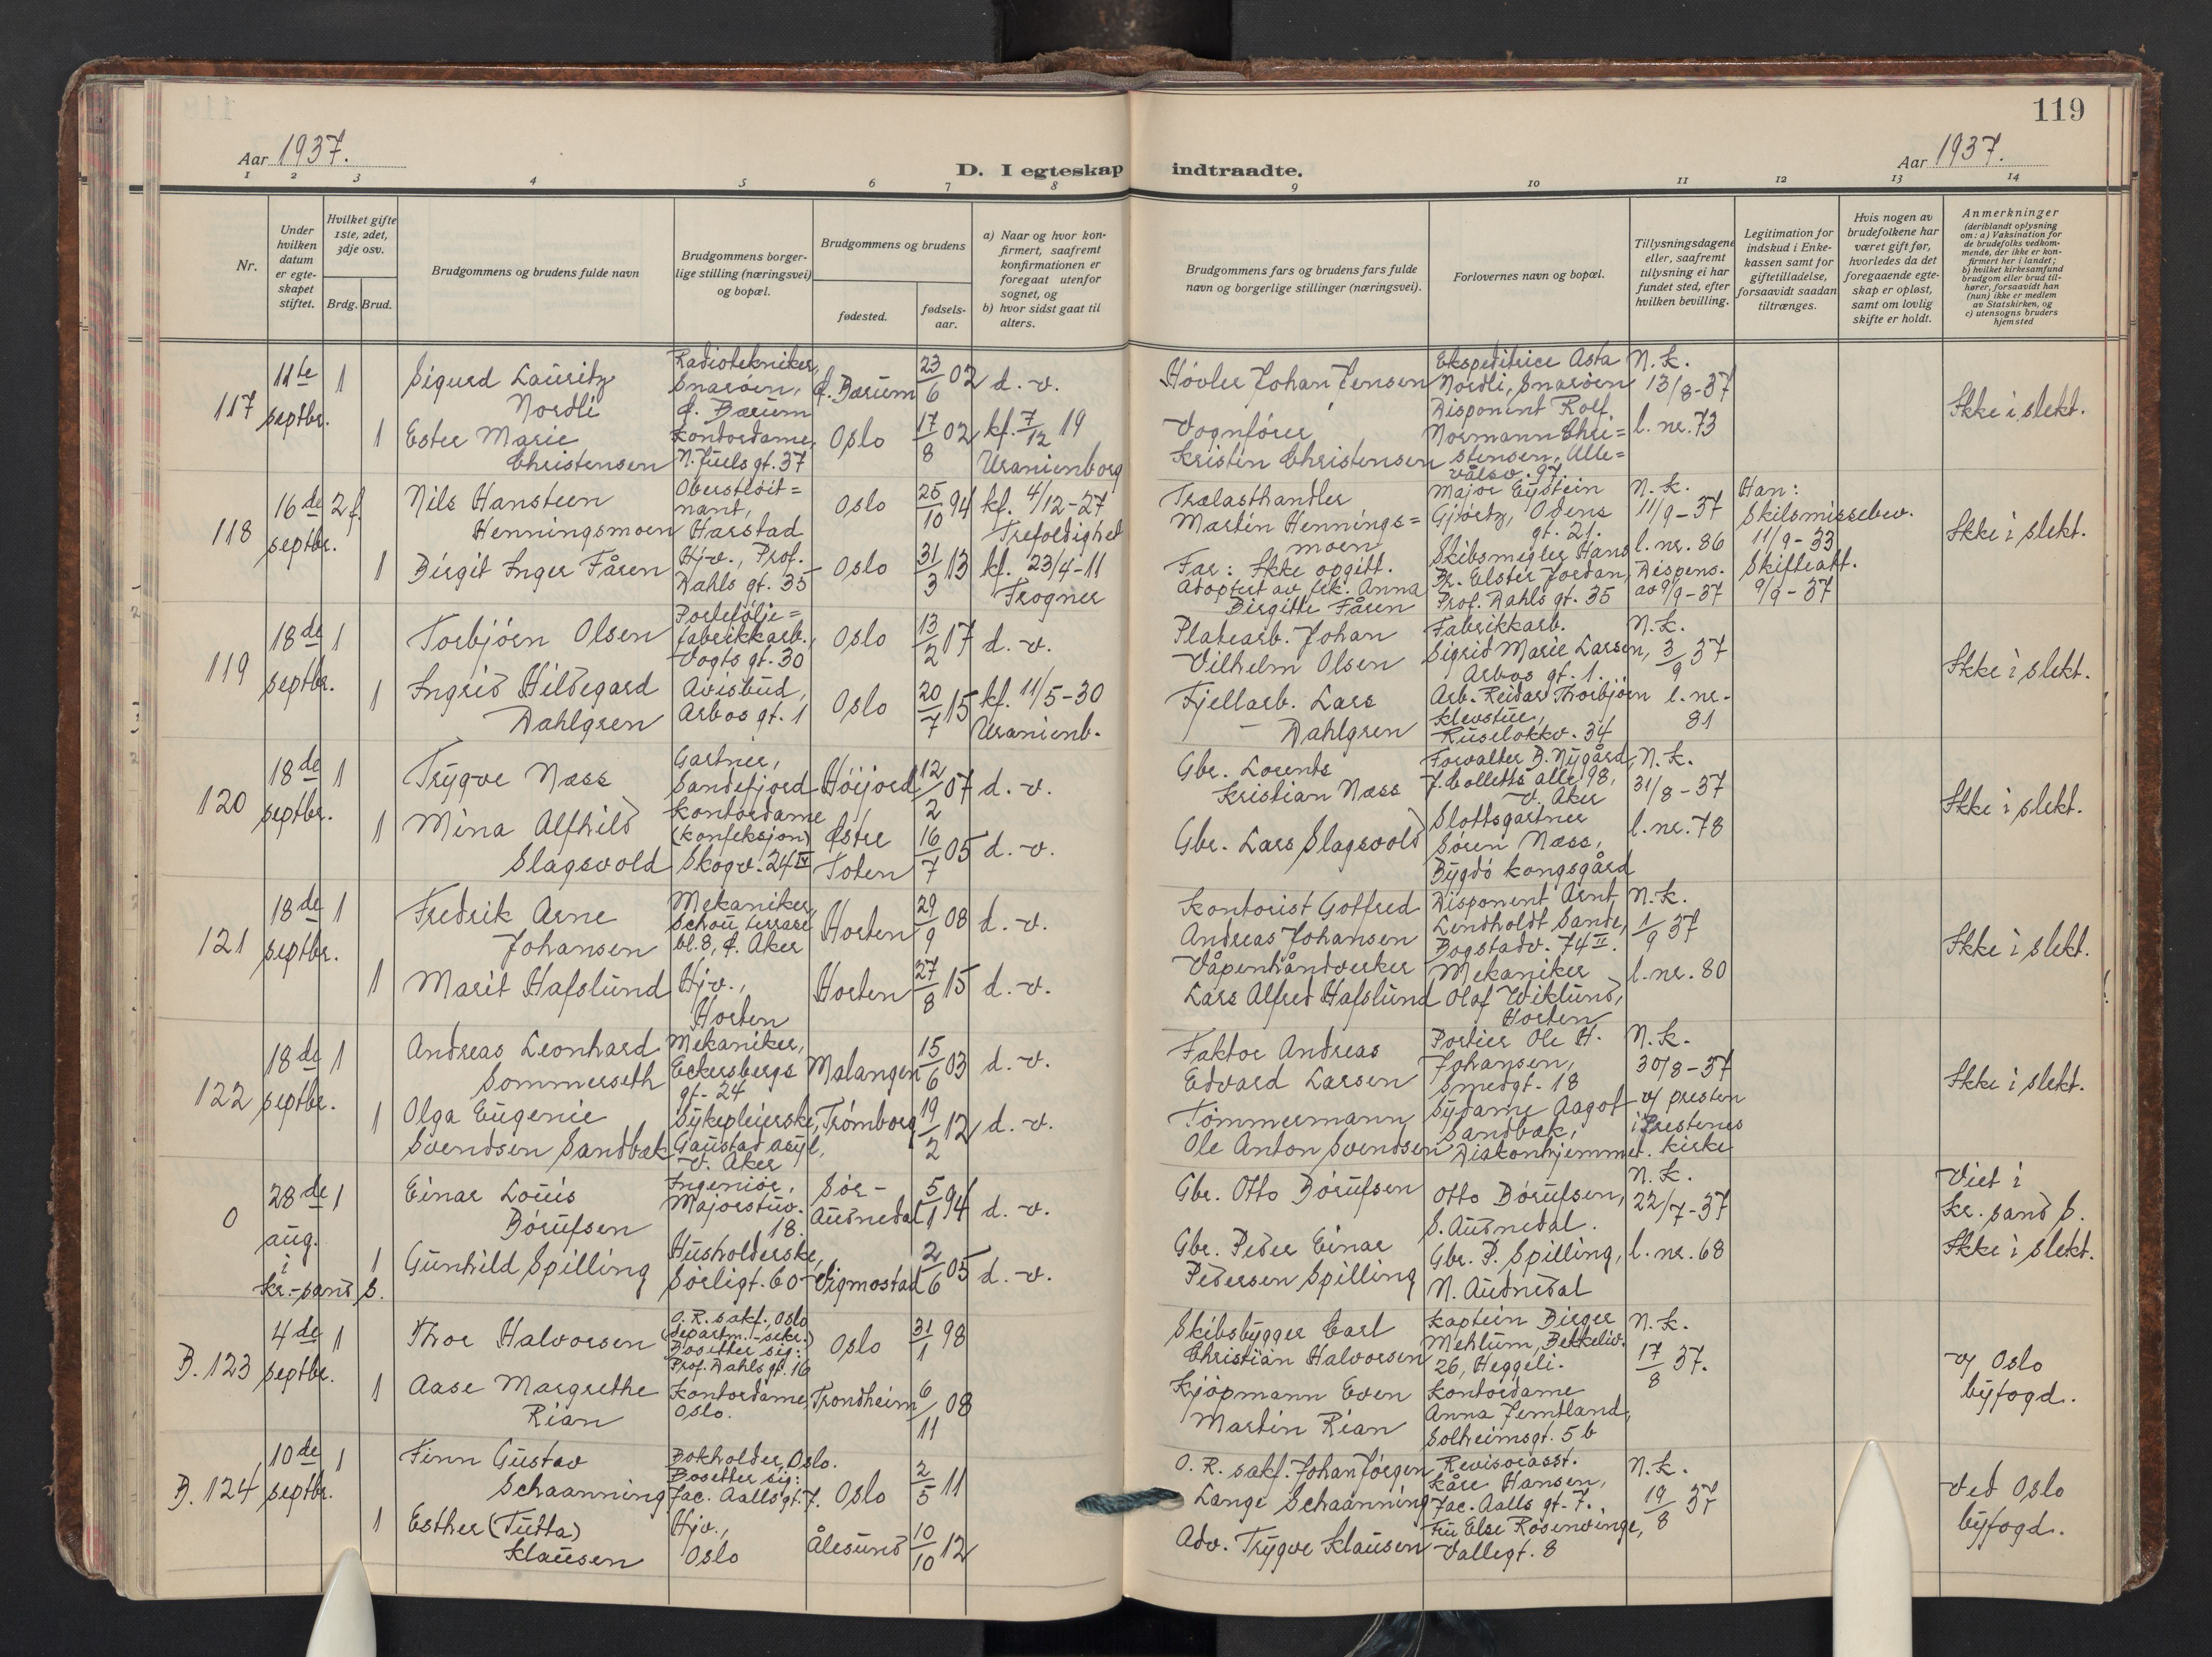 119
Aar 1937.
Aar 1937.
D. I egteskap indtraadte.
1 2 3 4 5 6 7 8 9 10 11 12 13 14
Nr.
Under hvilken datum er egteskapet stiftet.
Hvilket gifte 1ste, 2det, 3dje osv.
Brdg. Brud.
Brudgommens og brudens fulde navn
Brudgommens borgerlige stilling (næringsvei) og bopæl.
Brudgommens og brudens
fødested.
fødselsaar.
a) Naar og hvor konfirmert, saafremt konfirmationen er foregaat utenfor sognet, og
b) hvor sidst gaat til alters.
Brudgommens fars og brudens fars fulde navn og borgerlige stillinger (næringsvei).
Forlovernes navn og bopæl.
Tillysningsdagene eller, saafremt tillysning ei har fundet sted, efter hvilken bevilling.
Legitimation for indskud i Enkekassen samt for giftetilladelse, forsaavidt saadan tiltrænges.
Hvis nogen av brudefolkene har været gift før, hvorledes da det foregaaende egteskap er opløst, samt om lovlig skifte er holdt.
Anmerkninger
(deriblandt oplysning om: a) Vaksination for de brudefolks vedkommende, der ikke er konfirmert her i landet;
b) hvilket kirkesamfund brudgom eller brud tilhører, forsaavidt han (hun) ikke er medlem av Statskirken, og
c) utensogns bruders hjemsted
117
11te septbr.
1
Sigurd Lauritz Nordli
Radiotekniker, Snarøen, Ø. Bærum
Ø. Bærum
23/6 02
d. v.
Høvler Johan Jensen
Ekspeditrice Asta Nordli, Snarøen
N. k. 13/8-37
l. nr. 73
Ikke i slekt.
1
Ester Marie Christensen
Kontordame, N. Juels gt. 37
Oslo
17/8 02
kf. 7/12 19 Uranienborg
Vognfører Kristen Christensen
Disponent Rolf Normann Christensen, Ullevålsv. 97.
118
16de septbr.
2 f.
Nils Hansteen Henningsmoen
Oberstløitnant, Harstad
Oslo
25/10 94
kf. 4/12-27 Trefoldighet
Trælasthandler Martin Henningsmoen
Major Eystein Gjørtz, Odens gt. 21.
N. k. 11/9-37
l. nr. 86
Dispens. av 9/9-37
Han: Skilsmissebev. 11/9-33
Skifteatt. 9/9-37
Ikke i slekt.
1
Birgit Inger Fåren
Hjv., Prof. Dahls gt. 35
Oslo
31/3 13
kf. 23/4-11 Frogner
Far: Ikke opgitt. Adoptert av frk. Anna Birgitte Fåren
Skibsmegler Hans Br. Elster Jordan, Prof. Dahls gt. 35
119
18de septbr.
1
Torbjørn Olsen
Porteføljefabrikkarb., Vogts gt. 30
Oslo
13/2 17
d. v.
Platearb. Johan Vilhelm Olsen
Fabrikkarb. Sigrid Marie Larsen, Arbos gt. 1.
N. k. 3/9 37
l. nr. 81
Ikke i slekt.
1
Ingrid Hildegard Dahlgren
Avisbud, Arbos gt. 1
Oslo
20/7 15
kf. 11/5-30 Uranienb.
Fjellarb. Lars Dahlgren
Arb. Reidar Thorbjørn Klevstue, Ruseløkkv. 34
120
18de septbr.
1
Trygve Næss
Gartner, Sandefjord
Høijord
12/2 07
d. v.
Gbr. Lorents Kristian Næss
Forvalter B. Nygård, J. Colletts alle 98, V. Aker
N. k. 31/8-37
l. nr. 78
Ikke i slekt.
1
Mina Alfhild Slagsvold
Kontordame (konfeksjon) Skogv. 24 IV
Østre Toten
16/7 05
d. v.
Gbr. Lars Slagsvold
Slottsgartner Søren Næss, Bygdø kongsgård
121
18de septbr.
1
Fredrik Arne Johansen
Mekaniker, Schou terrasse bl. 8, Ø. Aker
Horten
29/9 08
d. v.
Kontorist Gotfred Andreas Johansen
Disponent Arnt Lindholdt Sande, Bogstadv. 74 II.
N. k. 1/9 37
l. nr. 80
Ikke i slekt.
1
Marit Hafslund
Hjv., Horten
Horten
27/8 15
d. v.
Våpenhåndverker Lars Alfred Hafslund
Mekaniker Olaf Wiklund, Horten
122
18de septbr.
1
Andreas Leonhard Sommerseth
Mekaniker, Eckersbergs gt. 24
Malangen
15/6 03
d. v.
Faktor Andreas Edvard Larsen
Portier Ole H. Johansen, Smedgt. 18
N. k. 30/8-37
v/ presten i Prestenes kirke
Ikke i slekt.
1
Olga Eugenie Svendsen Sandbæk
Sykepleierske, Gaustad asyl, V. Aker
Trømborg
19/2 12
d. v.
Tømmermann Ole Anton Svendsen
Sydame Aagot Sandbæk, Diakonhjemmet.
0
28de aug. i Kr.-sand S.
1
Einar Louis Børufsen
Ingeniør, Majorstuv. 18.
Sør-Audnedal
5/1 94
d. v.
Gbr. Otto Børufsen
Otto Børufsen, S. Audnedal.
N. k. 22/7-37
l. nr. 68
Viet i Kr. sand S. Ikke i slekt.
1
Gunhild Spilling
Husholderske, Sørligt. 60
Vigmostad
2/6 05
d. v.
Gbr. Peder Einar Pedersen Spilling
Gbr. P. Spilling, N. Audnedal
B. 123
4de septbr.
1
Thor Halvorsen
O. R. sakf., Oslo (departm.-sekr.) Bosetter sig: Prof. Dahls gt. 16
Oslo
31/1 98
Skibsbygger Carl Christian Halvorsen
Kaptein Birger Mehlum, Bekkeliv. 26, Heggeli.
N. k. 17/8 37.
v/ Oslo byfogd.
1
Aase Margrethe Rian
Kontordame, Oslo.
Trondheim
6/11 08
Kjøpmann Even Martin Rian
Kontordame Anna Jemtland, Solheimsgt. 5 b
B. 124
10de septbr.
1
Finn Gustav Schaanning
Bokholder, Oslo. Bosetter sig: Jac. Aalls gt. 7.
Oslo
2/5 11
O. R. sakf. Johan Jørgen Lange Schaanning
Revisorasst. Kåre Hansen, Jac. Aalls gt. 7.
N. k. 19/8 37
Ved Oslo byfogd.
1
Esther (Tutta) Klausen
Hjv., Oslo
Ålesund
10/10 12
Adv. Trygve Klausen
Fru Else Rosenvinge, Vallegt. 8